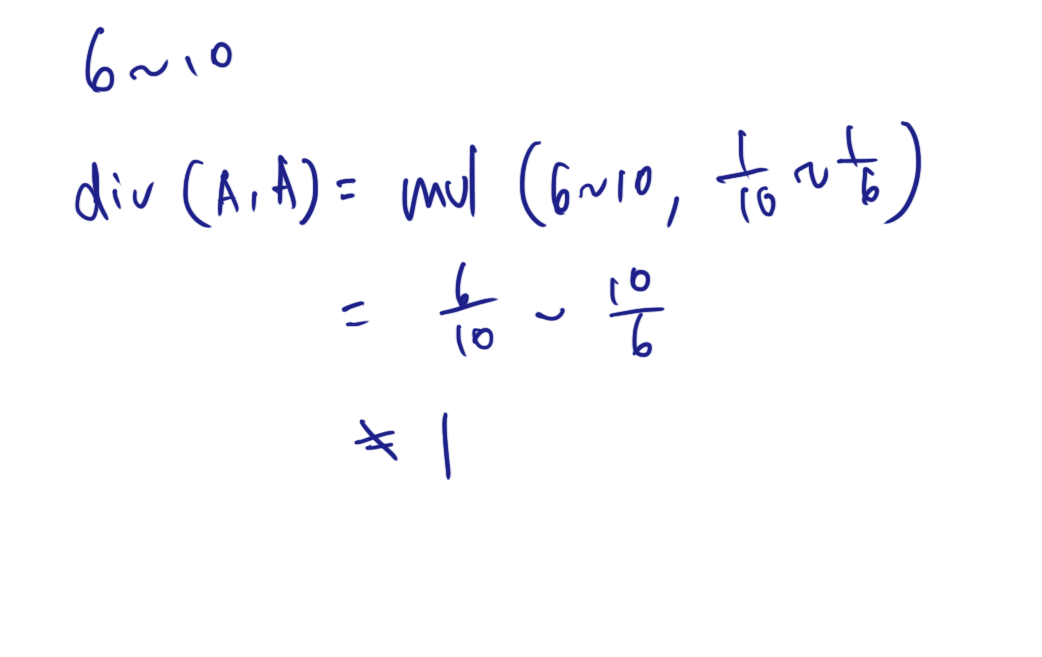 6~10
div (A,A) = mul (6~10, 1/10 ~ 1/6)
= 6/10 ~ 10/6
≠ 1